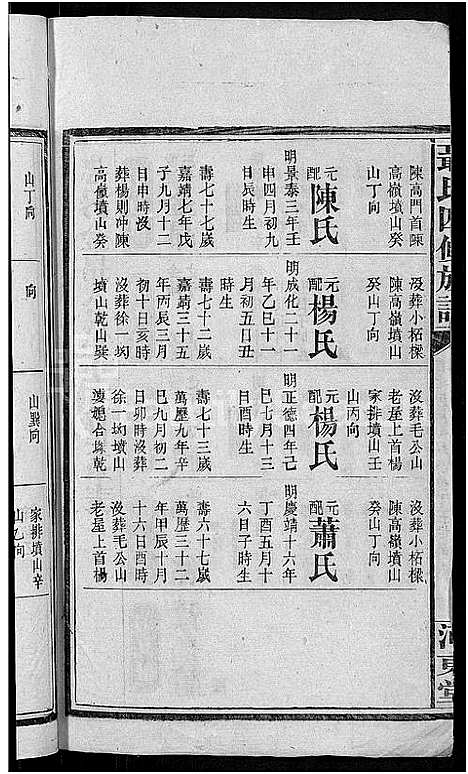 陳高門首陳
高嶺墳山癸
山丁向
元配陳氏
明景泰三年壬
申四月初九
日申時生
壽七十七歲
嘉靖七年戊
子九月十二
日申時沒
葬楊則冲陳
高嶺墳山癸
沒葬小柘樑
陳高嶺墳山
癸山丁向
元配楊氏
明成化二十一
年乙巳十一
月初五日丑
時生
壽七十二歲
嘉靖三十五
年丙辰三月
初十日亥時
沒葬徐一坳
墳山乾山巽
沒葬毛公山
老屋上首楊
家排墳山壬
山丙向
元配楊氏
明正德四年己
巳七月十三
日酉時生
壽七十三歲
萬歷九年辛
巳九月初二
日卯時沒葬
徐一坳墳山
合塚乾
沒葬小柘樑
陳高嶺墳山
癸山丁向
元配蕭氏
明慶靖十六年
丁酉五月十
六日子時生
壽六十七歲
萬歷三十二
年甲辰十月
十六日酉時
沒葬毛公山
老屋上首楊
氏四修族譜
河東堂
山丁向
向
山巽向
家排墳山辛
山乙向